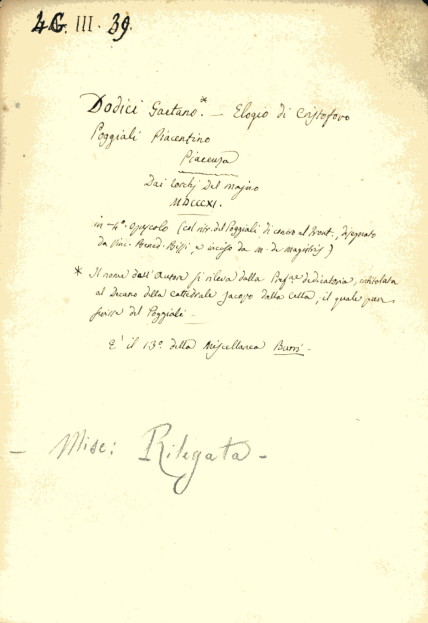 4G. III. 39.
Dodici Gaetano.* — Elogio di Cristoforo
Poggiali Piacentino
Piacenza
Dai torchj del Majno
MDCCCXI.
in-4°. opuscolo (col ritr. del Poggiali di contro al Front., disegnato
da Vinc. Bened. Bissi, e inciso da M. de Magistris)
* Il nome dell'Autore si rileva dalla Pref.ne dedicatoria, intitolata
al Decano della Cattedrale Jacopo dalla Cella; il quale pure
scrisse del Poggiali —
È il 13°. della Miscellanea Burri —
— Misc: Rilegata —